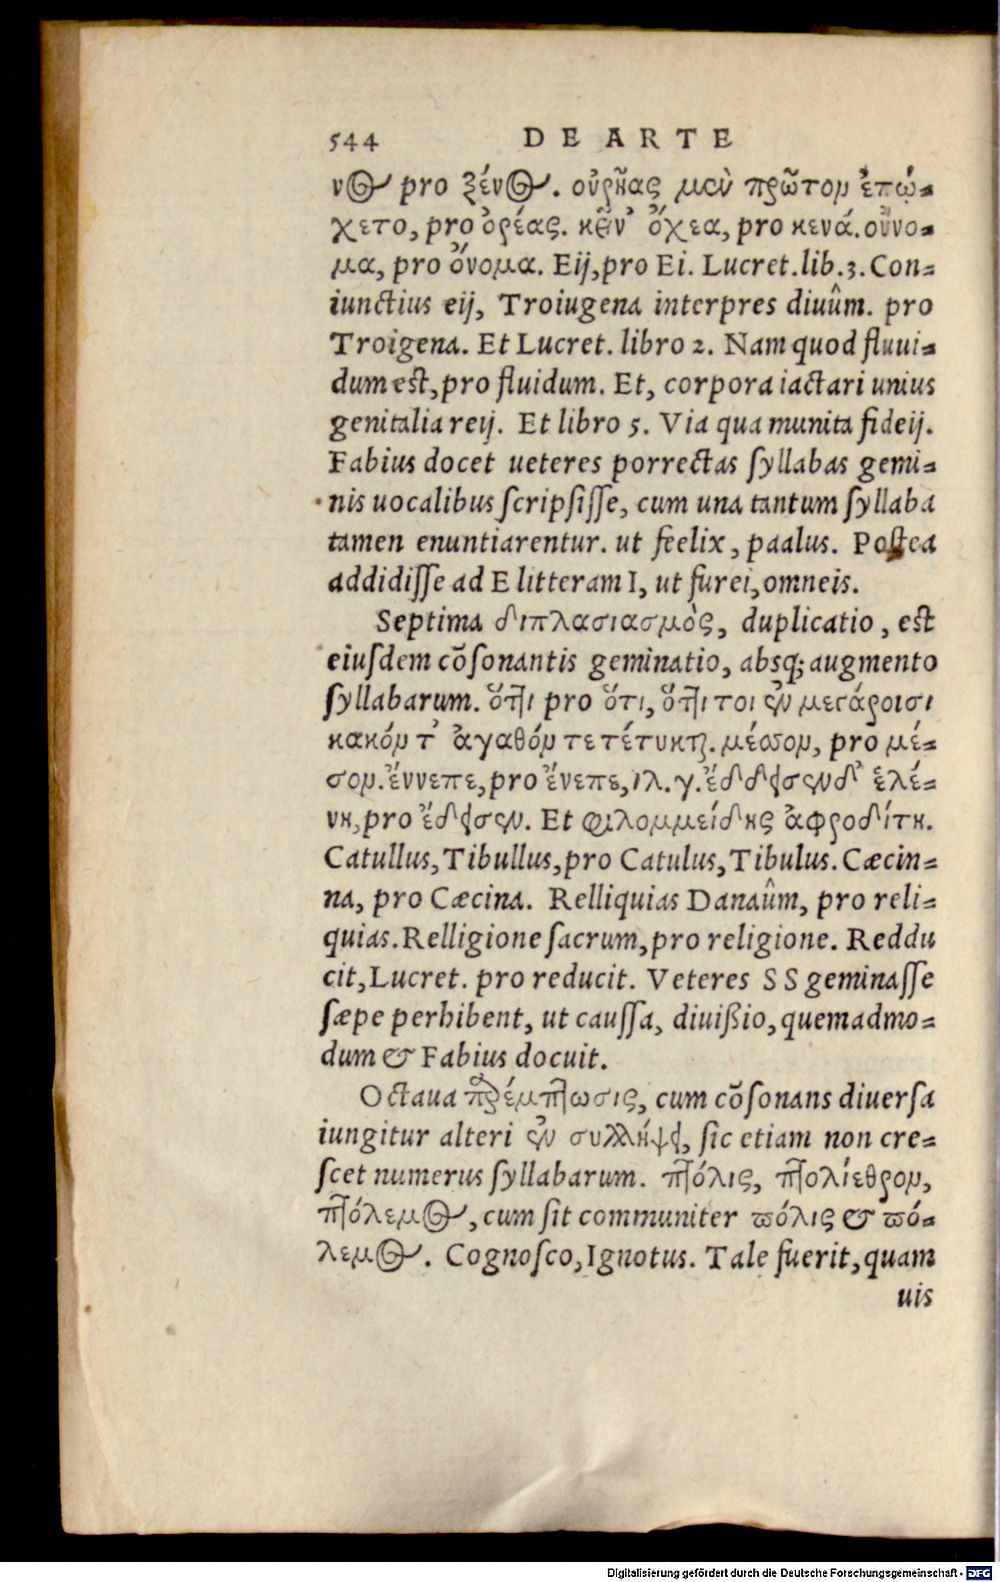 544 DE ARTE
νος pro ξένος. οὐρῆας μὲν πρῶτον ἐπῴ-
χετο, pro ὀρέας. κείν' ὄχεα, pro κενά. οὔνο-
μα, pro ὄνομα. Eij, pro Ei. Lucret. lib. 3. Con-
iunctius eij, Troiugena interpres diuûm. pro
Troigena. Et Lucret. libro 2. Nam quod fluui-
dum est, pro fluidum. Et, corpora iactari unius
genitalia reij. Et libro 5. Via qua munita fideij.
Fabius docet ueteres porrectas syllabas gemi-
nis uocalibus scripsisse, cum una tantum syllaba
tamen enuntiarentur. ut feelix, paalus. Postea
addidisse ad E litteram I, ut furei, omneis.
Septima διπλασιασμὸς, duplicatio, est
eiusdem cōsonantis geminatio, absq; augmento
syllabarum. ὅττι pro ὅτι, ὅττι τοι ἐν μεγάροισι
κακόν τ' ἀγαθόν τε τέτυκται. μέσσον, pro μέ-
σον. ἔννεπε, pro ἔνεπε, ιλ. γ. ἔδδεισεν δ' ἑλέ-
νη, pro ἔδεισεν. Et φιλομμείδης ἀφροδίτη.
Catullus, Tibullus, pro Catulus, Tibulus. Cæcin-
na, pro Cæcina. Relliquias Danaûm, pro reli-
quias. Relligione sacrum, pro religione. Reddu
cit, Lucret. pro reducit. Veteres SS geminasse
sæpe perhibent, ut caussa, diuißio, quemadmo-
dum & Fabius docuit.
Octaua παρέμπτωσις, cum cōsonans diuersa
iungitur alteri ἐν συλλήψει, sic etiam non cre-
scet numerus syllabarum. πτόλις, πτολίεθρον,
πτόλεμος, cum sit communiter πόλις & πό-
λεμος. Cognosco, Ignotus. Tale fuerit, quam
uis
Digitalisierung gefördert durch die Deutsche Forschungsgemeinschaft - DFG